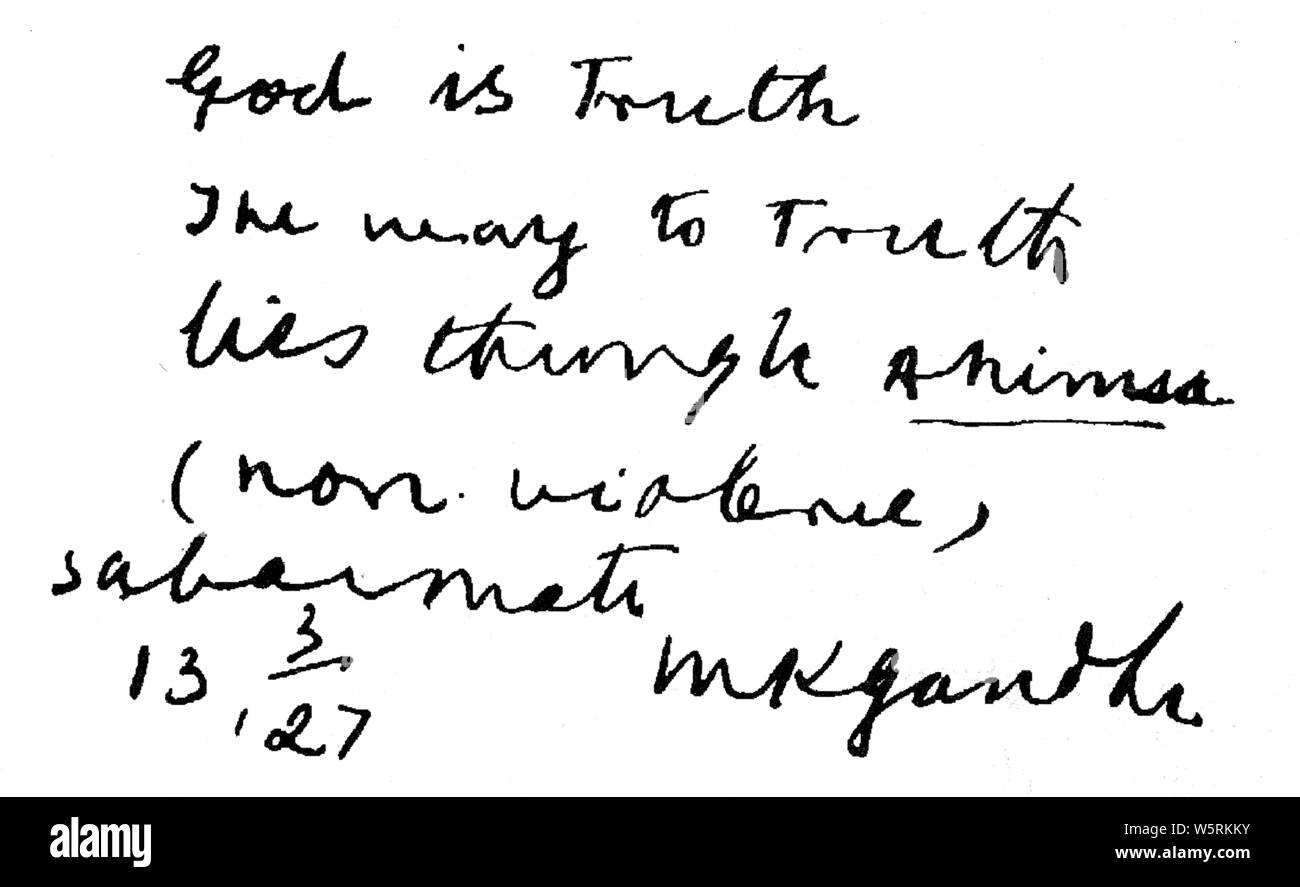 God is Truth
The way to Truth
lies through Ahimsa
(non-violence)
Sabarmati
13 3/27
MKGandhi
a alamy
alamy
Image ID: W5RKKY
www.alamy.com